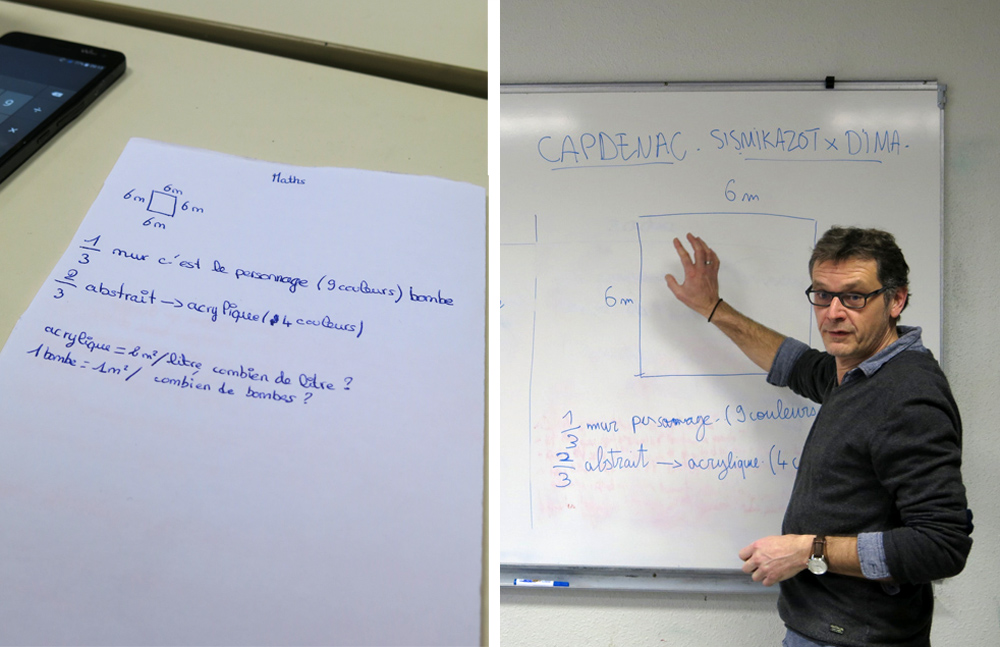 Maths
6m
6m 6m
6m
1/3 mur c'est le personnage (9 couleurs) bombe
2/3 abstrait → acrylique (4 couleurs)
acrylique = 2m²/litre combien de litre ?
1 bombe = 1m²/ combien de bombes ?
9
÷
×
CAPDENAC. SISMIKAZOT x DIMA.
6m
6m
1/3 mur personnage. (9 couleurs
2/3 abstrait → acrylique. (4 c